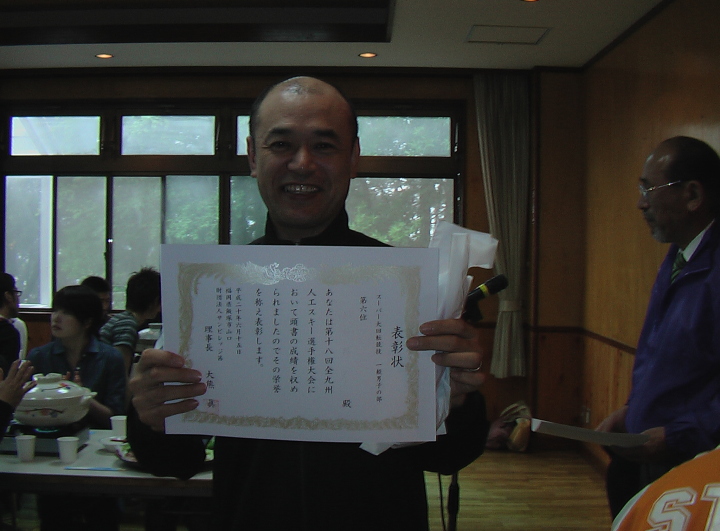 表彰状
スーパー大回転競技 一般男子の部
第六位
殿
あなたは第十八回全九州
人工スキー選手権大会に
おいて頭書の成績を収め
られましたのでその栄誉
を称え表彰します。
平成二十年六月十五日
財団法人サンビレッジ茜
理事長 大熊